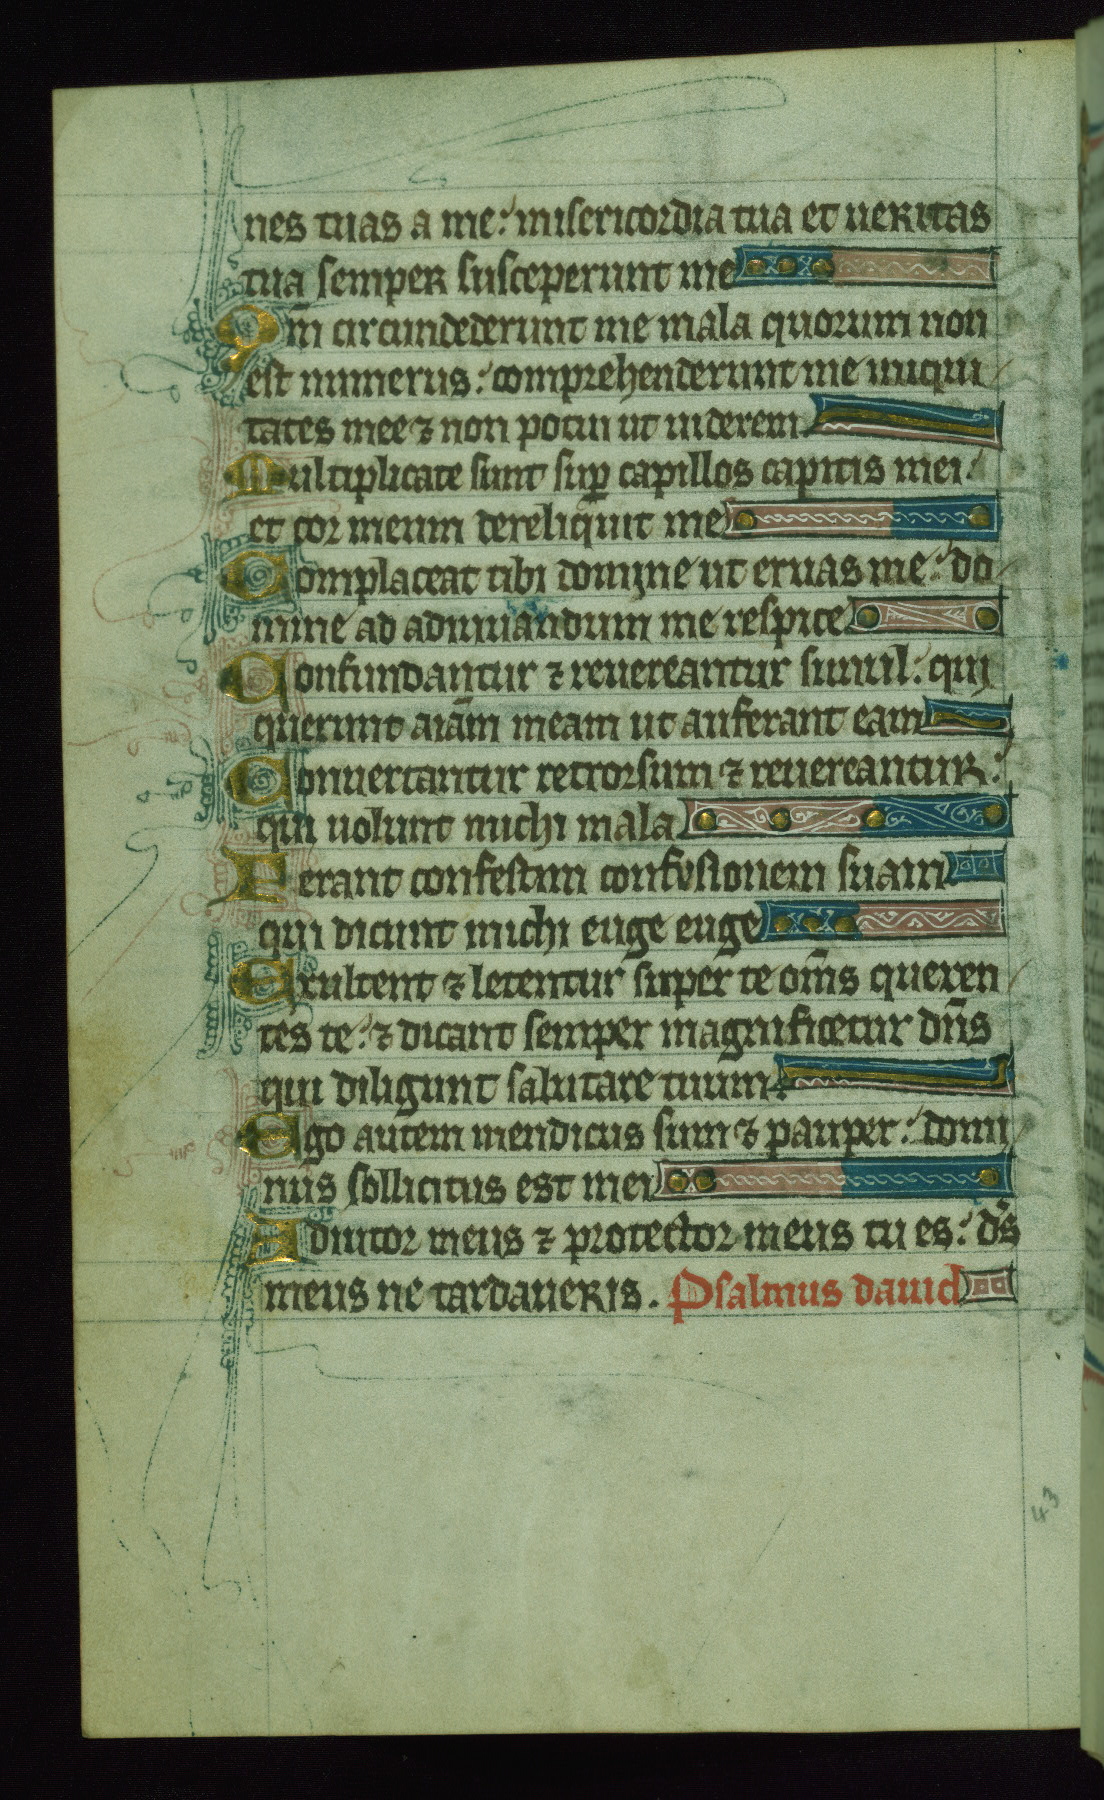 nes tuas a me: misericordia tua et ueritas
tua semper susceperunt me
Qm̄ circundederunt me mala quorum non
est numerus: comprehenderunt me iniqui
tates mee ⁊ non potui ut uiderem
Multiplicate sunt suꝑ capillos capitis mei:
et cor meum dereliquit me
Complaceat tibi domine ut eruas me: do
mine ad adiuuandum me respice
Confundantur ⁊ reuereantur simul: qui
querunt aīam meam ut auferant eam
Conuertantur retrorsum ⁊ reuereantur:
qui uolunt michi mala
Ferant confestim confusionem suam
qui dicunt michi euge euge
Exultent ⁊ letentur super te om̄s queren
tes te: ⁊ dicant semper magnificetur dn̄s
qui diligunt salutare tuum
Ego autem mendicus sum ⁊ pauper: domi
nus sollicitus est mei
Adiutor meus ⁊ protector meus tu es: ds̄
meus ne tardaueris. Psalmus dauid
43